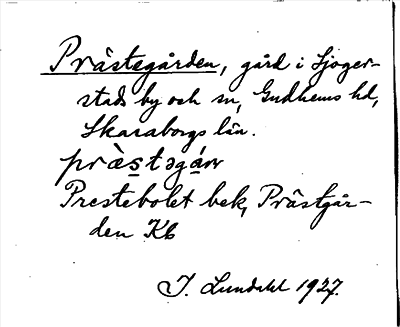 Prästegården, gård i Sjoger-
stads by och sn, Gudhems hd,
Skaraborgs län.
prȁstəgárr
Prestebolet bek, Prästgår-
den Kb
I. Lundahl 1927.